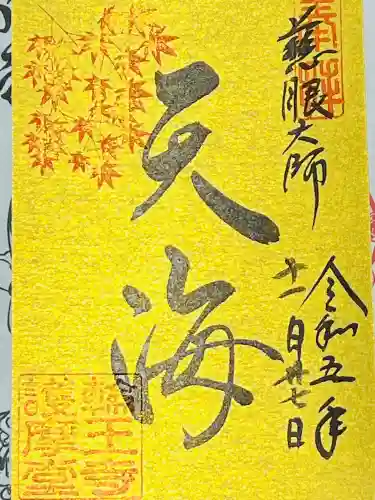 奉拝
慈眼大師
令和五年
十一月廿七日
天海
護摩堂